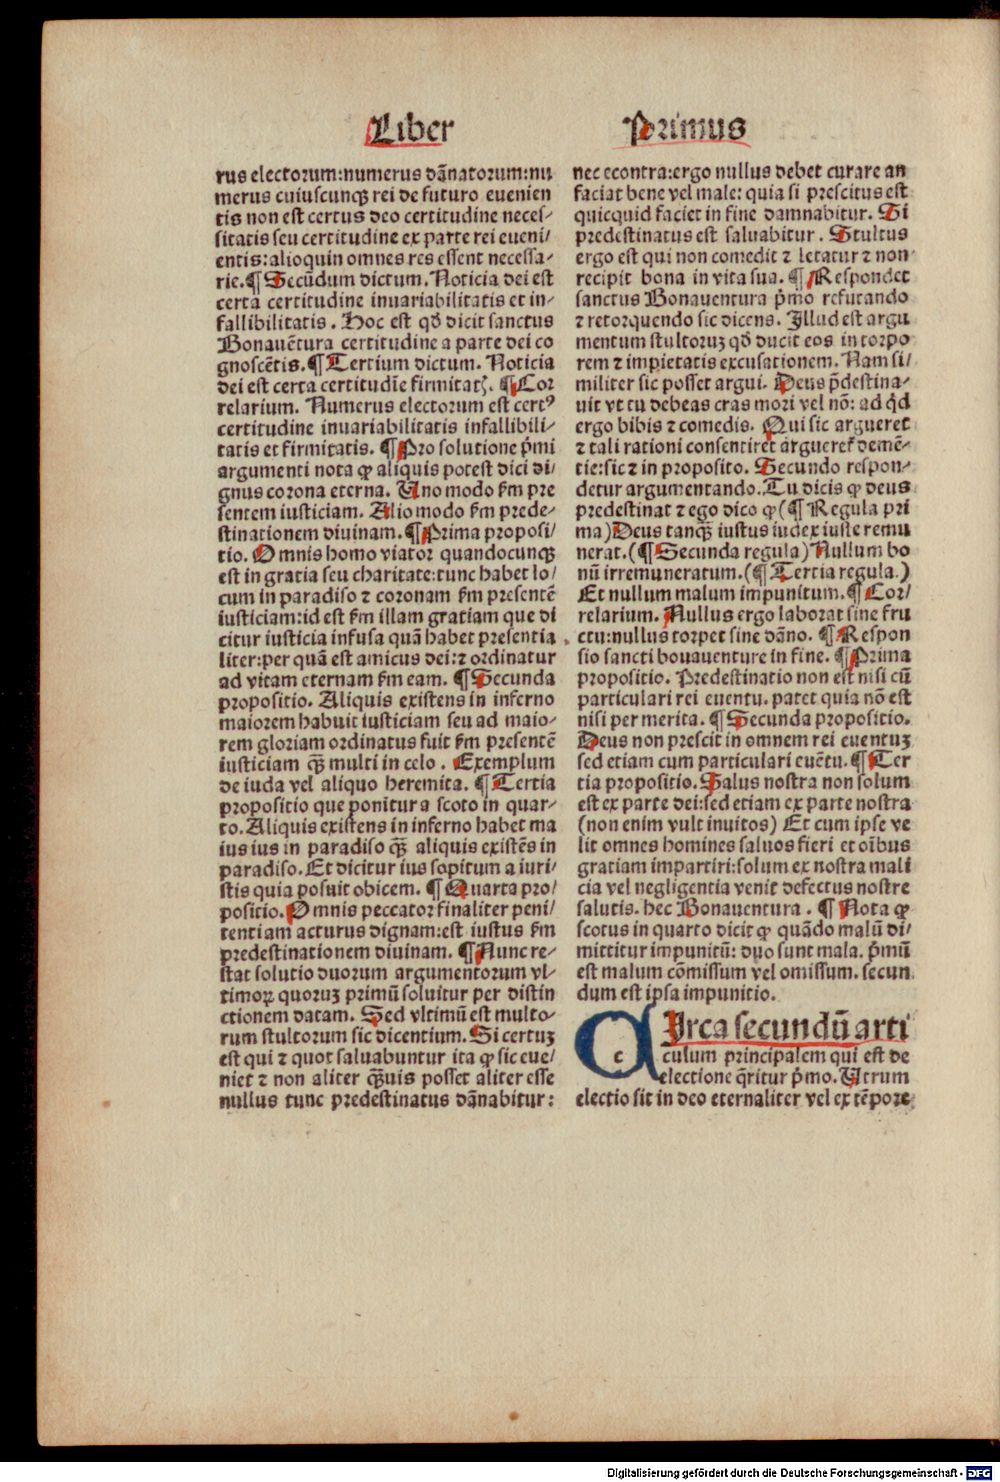 Liber Primus
rus electorum:numerus dãnatorum:nu
merus cuiuscunqꝫ rei de futuro euenien
tis non est certus deo certitudine neces-
sitatis seu certitudine ex parte rei eueni/
entis:alioquin omnes res essent necessa-
rie.¶ Secũdum dictum. Noticia dei est
certa certitudine inuariabilitatis et in-
fallibilitatis. Hoc est qð dicit sanctus
Bonauẽtura certitudine a parte dei co
gnoscẽtis.¶ Tertium dictum. Noticia
dei est certa certitudĩe firmitatꝭ. ¶ Cor
relarium. Numerus electorum est certꝰ
certitudine inuariabilitatis infallibili-
tatis et firmitatis. ¶ Pro solutione p̃mi
argumenti nota ꝙ aliquis potest dici di/
gnus corona eterna. Uno modo ẜm pre
sentem iusticiam. Alio modo ẜm prede-
stinationem diuinam. ¶ Prima proposi/
tio. Omnis homo viator quandocunqꝫ
est in gratia seu charitate:tunc habet lo/
cum in paradiso ⁊ coronam ẜm presentẽ
iusticiam:id est ẜm illam gratiam que di
citur iusticia infusa quã habet presentia
liter:per quã est amicus dei:⁊ ordinatur
ad vitam eternam ẜm eam. ¶ Secunda
propositio. Aliquis existens in inferno
maiorem habuit iusticiam seu ad maio-
rem gloriam ordinatus fuit ẜm presentẽ
iusticiam qꝫ̃ multi in celo. Exemplum
de iuda vel aliquo heremita. ¶ Tertia
propositio que ponitur a scoto in quar-
to. Aliquis existens in inferno habet ma
ius ius in paradiso qꝫ̃ aliquis existẽs in
paradiso. Et dicitur ius sopitum a iuri/
stis quia posuit obicem. ¶ Quarta pro/
positio. Omnis peccator finaliter peni/
tentiam acturus dignam:est iustus ẜm
predestinationem diuinam. ¶ Nunc re-
stat solutio duorum argumentorum vl-
timoꝝ quoruꝫ primũ soluitur per distin
ctionem datam. Sed vltimũ est multo-
rum stultorum sic dicentium. Si certuꝫ
est qui ⁊ quot saluabuntur ita ꝙ sic eue/
niet ⁊ non aliter qꝫ̃uis posset aliter esse
nullus tunc predestinatus dãnabitur:
nec econtra:ergo nullus debet curare an
faciat bene vel male: quia si prescitus est
quicquid faciet in fine damnabitur. Si
predestinatus est saluabitur. Stultus
ergo est qui non comedit ⁊ letatur ⁊ non
recipit bona in vita sua. ¶ Respondet
sanctus Bonauentura p̃mo refutando
⁊ retorquendo sic dicens. Illud est argu
mentum stultoruꝫ qð ducit eos in torpo
rem ⁊ impietatis excusationem. Nam si/
militer sic posset argui. Deus p̃destina-
uit vt tu debeas cras mori vel nõ: ad qͥd
ergo bibis ⁊ comedis. Qui sic argueret
⁊ tali rationi consentiret argueret᷑ demẽ-
tie:sic ⁊ in proposito. Secundo respon-
detur argumentando. Tu dicis ꝙ deus
predestinat ⁊ ego dico ꝙ (¶ Regula pri
ma) Deus tanqꝫ̃ iustus iudex iuste remu
nerat.(¶ Secunda regula) Nullum bo
nũ irremuneratum.(¶ Tertia regula.)
Et nullum malum impunitum. ¶ Cor/
relarium. Nullus ergo laborat sine fru
ctu:nullus torpet sine dãno. ¶ Respon
sio sancti bouauenture in fine. ¶ Prima
propositio. Predestinatio non est nisi cũ
particulari rei euentu. patet quia nõ est
nisi per merita. ¶ Secunda propositio.
Deus non prescit in omnem rei euentuꝫ
sed etiam cum particulari euẽtu. ¶ Ter
tia propositio. Salus nostra non solum
est ex parte dei:sed etiam ex parte nostra
(non enim vult inuitos) Et cum ipse ve
lit omnes homines saluos fieri et oĩbus
gratiam impartiri:solum ex nostra mali
cia vel negligentia venit defectus nostre
salutis. hec Bonauentura. ¶ Nota ꝙ
scotus in quarto dicit ꝙ quãdo malũ di/
mittitur impunitũ: duo sunt mala. p̃mũ
est malum cõmissum vel omissum. secun
dum est ipsa impunitio.
CIrca secundũ arti
culum principalem qui est de
electione q̃ritur p̃mo. Utrum
electio sit in deo eternaliter vel ex tẽpore
Digitalisierung gefördert durch die Deutsche Forschungsgemeinschaft - DFG